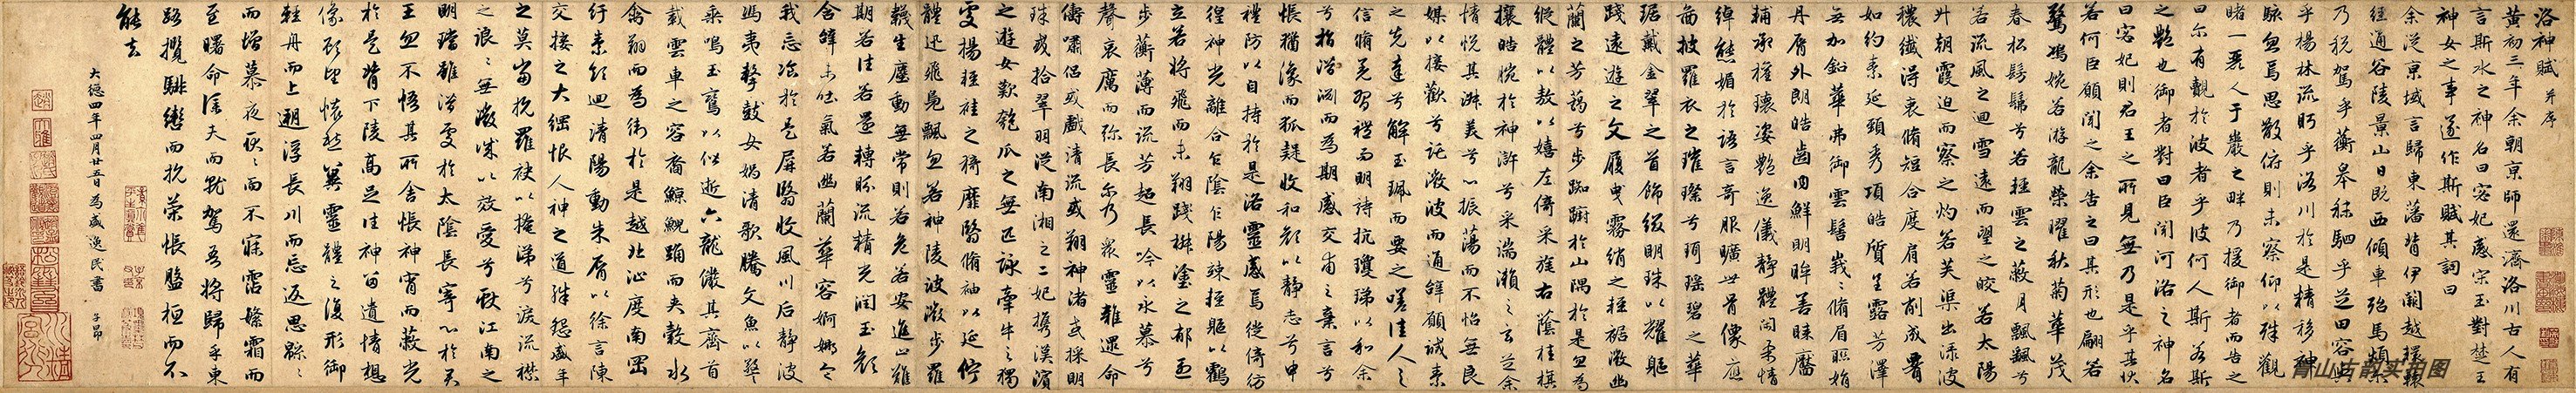 洛神賦 并序
黃初三年余朝京師還濟洛川古人有
言斯水之神名曰宓妃感宋玉對楚王
神女之事遂作斯賦其詞曰
余從京域言歸東藩背伊闕越轘轅
經通谷陵景山日既西傾車殆馬煩
乃稅駕乎蘅皋秣駟乎芝田容與
乎楊林流眄乎洛川於是精移神
駭忽焉思散俯則未察仰以殊觀
睹一麗人于巖之畔乃援御者而告之
曰尔有覿於彼者乎彼何人斯若斯
之艷也御者對曰臣聞河洛之神名
曰宓妃則君王之所見無乃是乎其狀
若何臣願聞之余告之曰其形也翩若
驚鴻婉若游龍榮曜秋菊華茂
春松髣髴兮若輕雲之蔽月飄颻兮
若流風之迴雪遠而望之皎若太陽
升朝霞迫而察之灼若芙渠出淥波
穠纖得衷脩短合度肩若削成腰
如約素延頸秀項皓質呈露芳澤
無加鉛華弗御雲髻峩〻脩眉聯娟
丹脣外朗皓齒內鮮明眸善睞靨
輔承權瓌姿艷逸儀靜體閑柔情
綽態媚於語言奇服曠世骨像應
圖披羅衣之璀璨兮珥瑤碧之華
琚戴金翠之首飾綴明珠以耀軀
踐遠遊之文履曳霧綃之輕裾微幽
蘭之芳藹兮步踟躕於山隅於是忽焉
縱體以敖以嬉左倚采旄右蔭桂旗
攘皓腕於神滸兮采湍瀨之玄芝余
情悅其淑美兮心振蕩而不怡無良
媒以接歡兮託微波而通辭願誠素
之先達兮解玉珮而要之嗟佳人之
信脩羌習禮而明詩抗瓊珶以和余
兮指潛淵而為期感交甫之棄言兮
悵猶豫而狐疑收和顏以靜志兮申
禮防以自持於是洛靈感焉徙倚彷
徨神光離合乍陰乍陽竦輕軀以鶴
立若將飛而未翔踐椒塗之郁烈
步蘅薄而流芳超長吟以永慕兮
聲哀厲而彌長尔乃衆靈雜遝命
儔嘯侶或戲清流或翔神渚或採明
珠或拾翠羽從南湘之二妃攜漢濱
之遊女歎匏瓜之無匹詠牽牛之獨
處揚輕袿之猗靡翳脩袖以延佇
體迅飛鳧飄忽若神陵波微步羅
襪生塵動無常則若危若安進止難
期若往若還轉眄流精光潤玉顏
含辭未吐氣若幽蘭華容婀娜令
我忘飡於是屏翳收風川后靜波
馮夷擊鼓女媧清歌騰文魚以警
乘鳴玉鸞以偕逝六龍儼其齊首
載雲車之容裔鯨鯢踊而夾轂水
禽翔而為衛於是越北沚度南岡
紆素領迴清陽動朱脣以徐言陳
交接之大綱恨人神之道殊怨盛年
之莫當抗羅袂以掩涕兮淚流襟
之浪〻無微情以效愛兮獻江南之
明璫雖潛處於太陰長寄心於君
王忽不悟其所舍悵神宵而蔽光
於是背下陵高足往神留遺情想
像顧望懷愁冀靈體之復形御
輕舟而上遡浮長川而忘返思緜〻
而增慕夜耿〻而不寐霑繁霜而
至曙命僕夫而就駕吾將歸乎東
路攬騑轡而抗策悵盤桓而不
能去
大德四年四月廿五日為盛逸民書 子昂